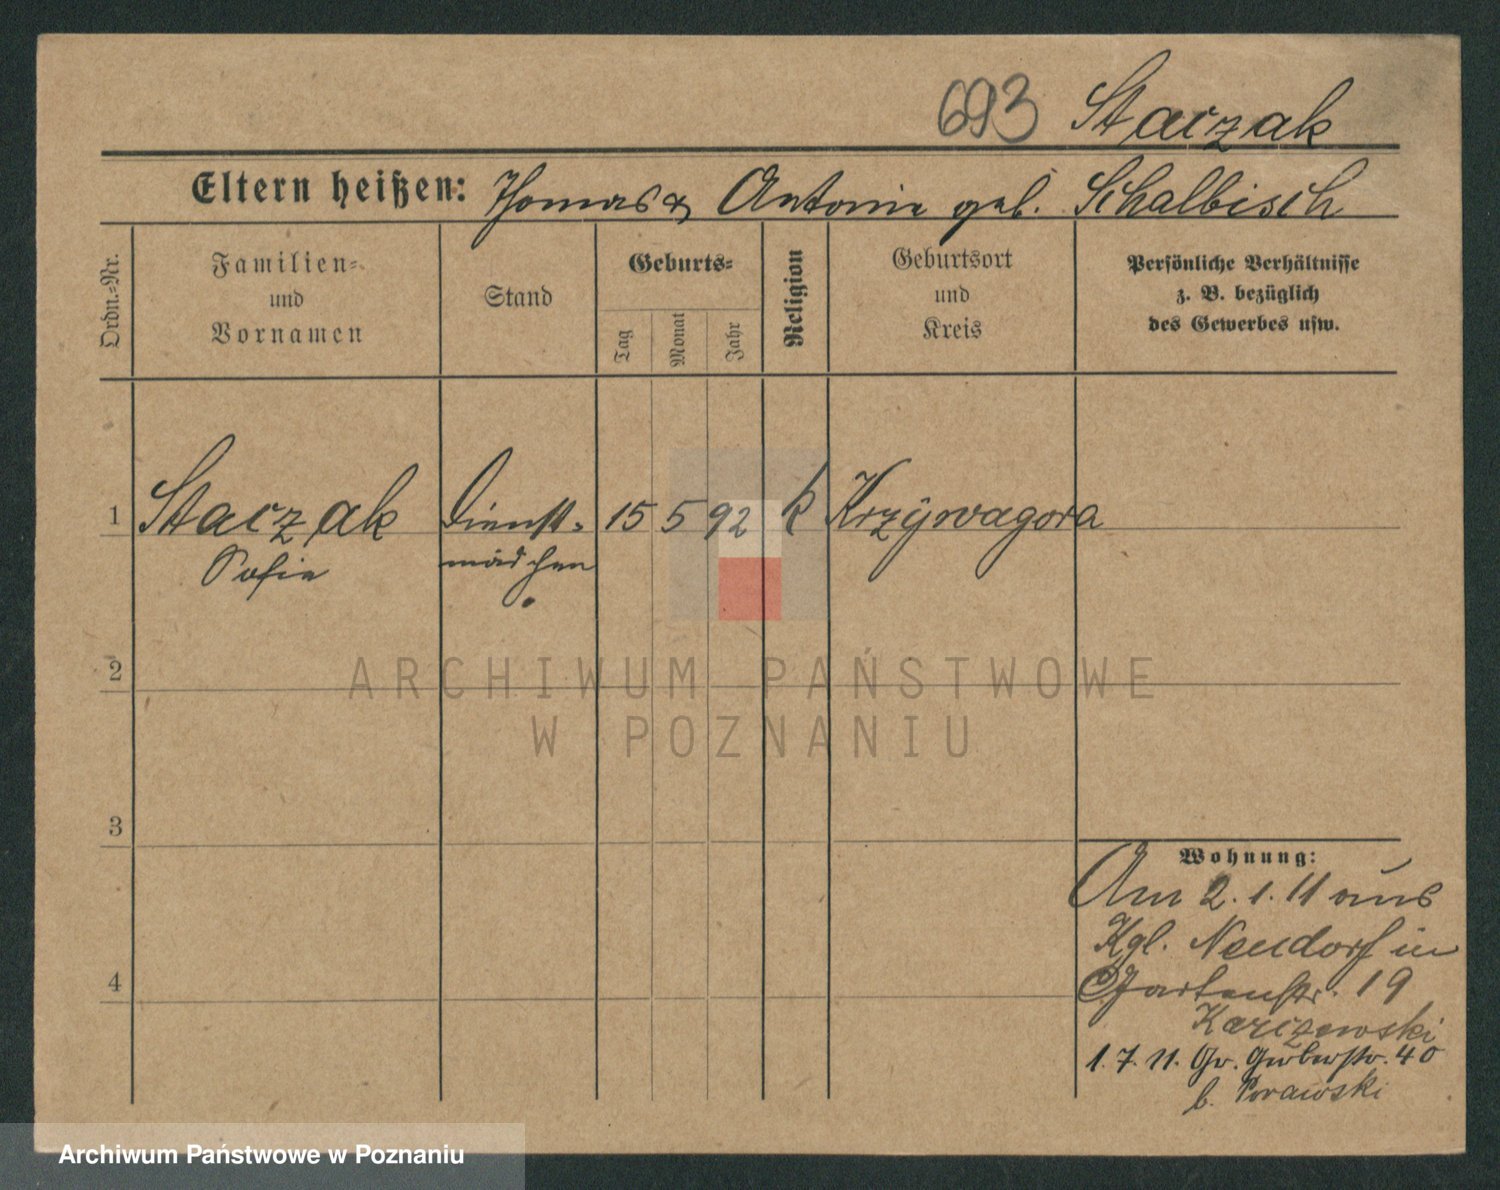 693 Staczak
Eltern heißen: Thomas & Antonie geb. Schalbisch
Ordn.=Nr.
Familien=
und
Vornamen
Stand
Geburts=
Tag
Monat
Jahr
Religion
Geburtsort
und
Kreis
Persönliche Verhältnisse
z. B. bezüglich
des Gewerbes usw.
1 Staczak Dienst= 15 5 92 k Krzywagora
Sofie mädchen
2
3
4
Wohnung:
Am 2.1.11 aus
Kgl. Neudorf in
Gartenstr. 19
Karczewski
1.7.11. Gr. Gerberstr. 40
b. Porawski
ARCHIWUM PAŃSTWOWE
W POZNANIU
Archiwum Państwowe w Poznaniu